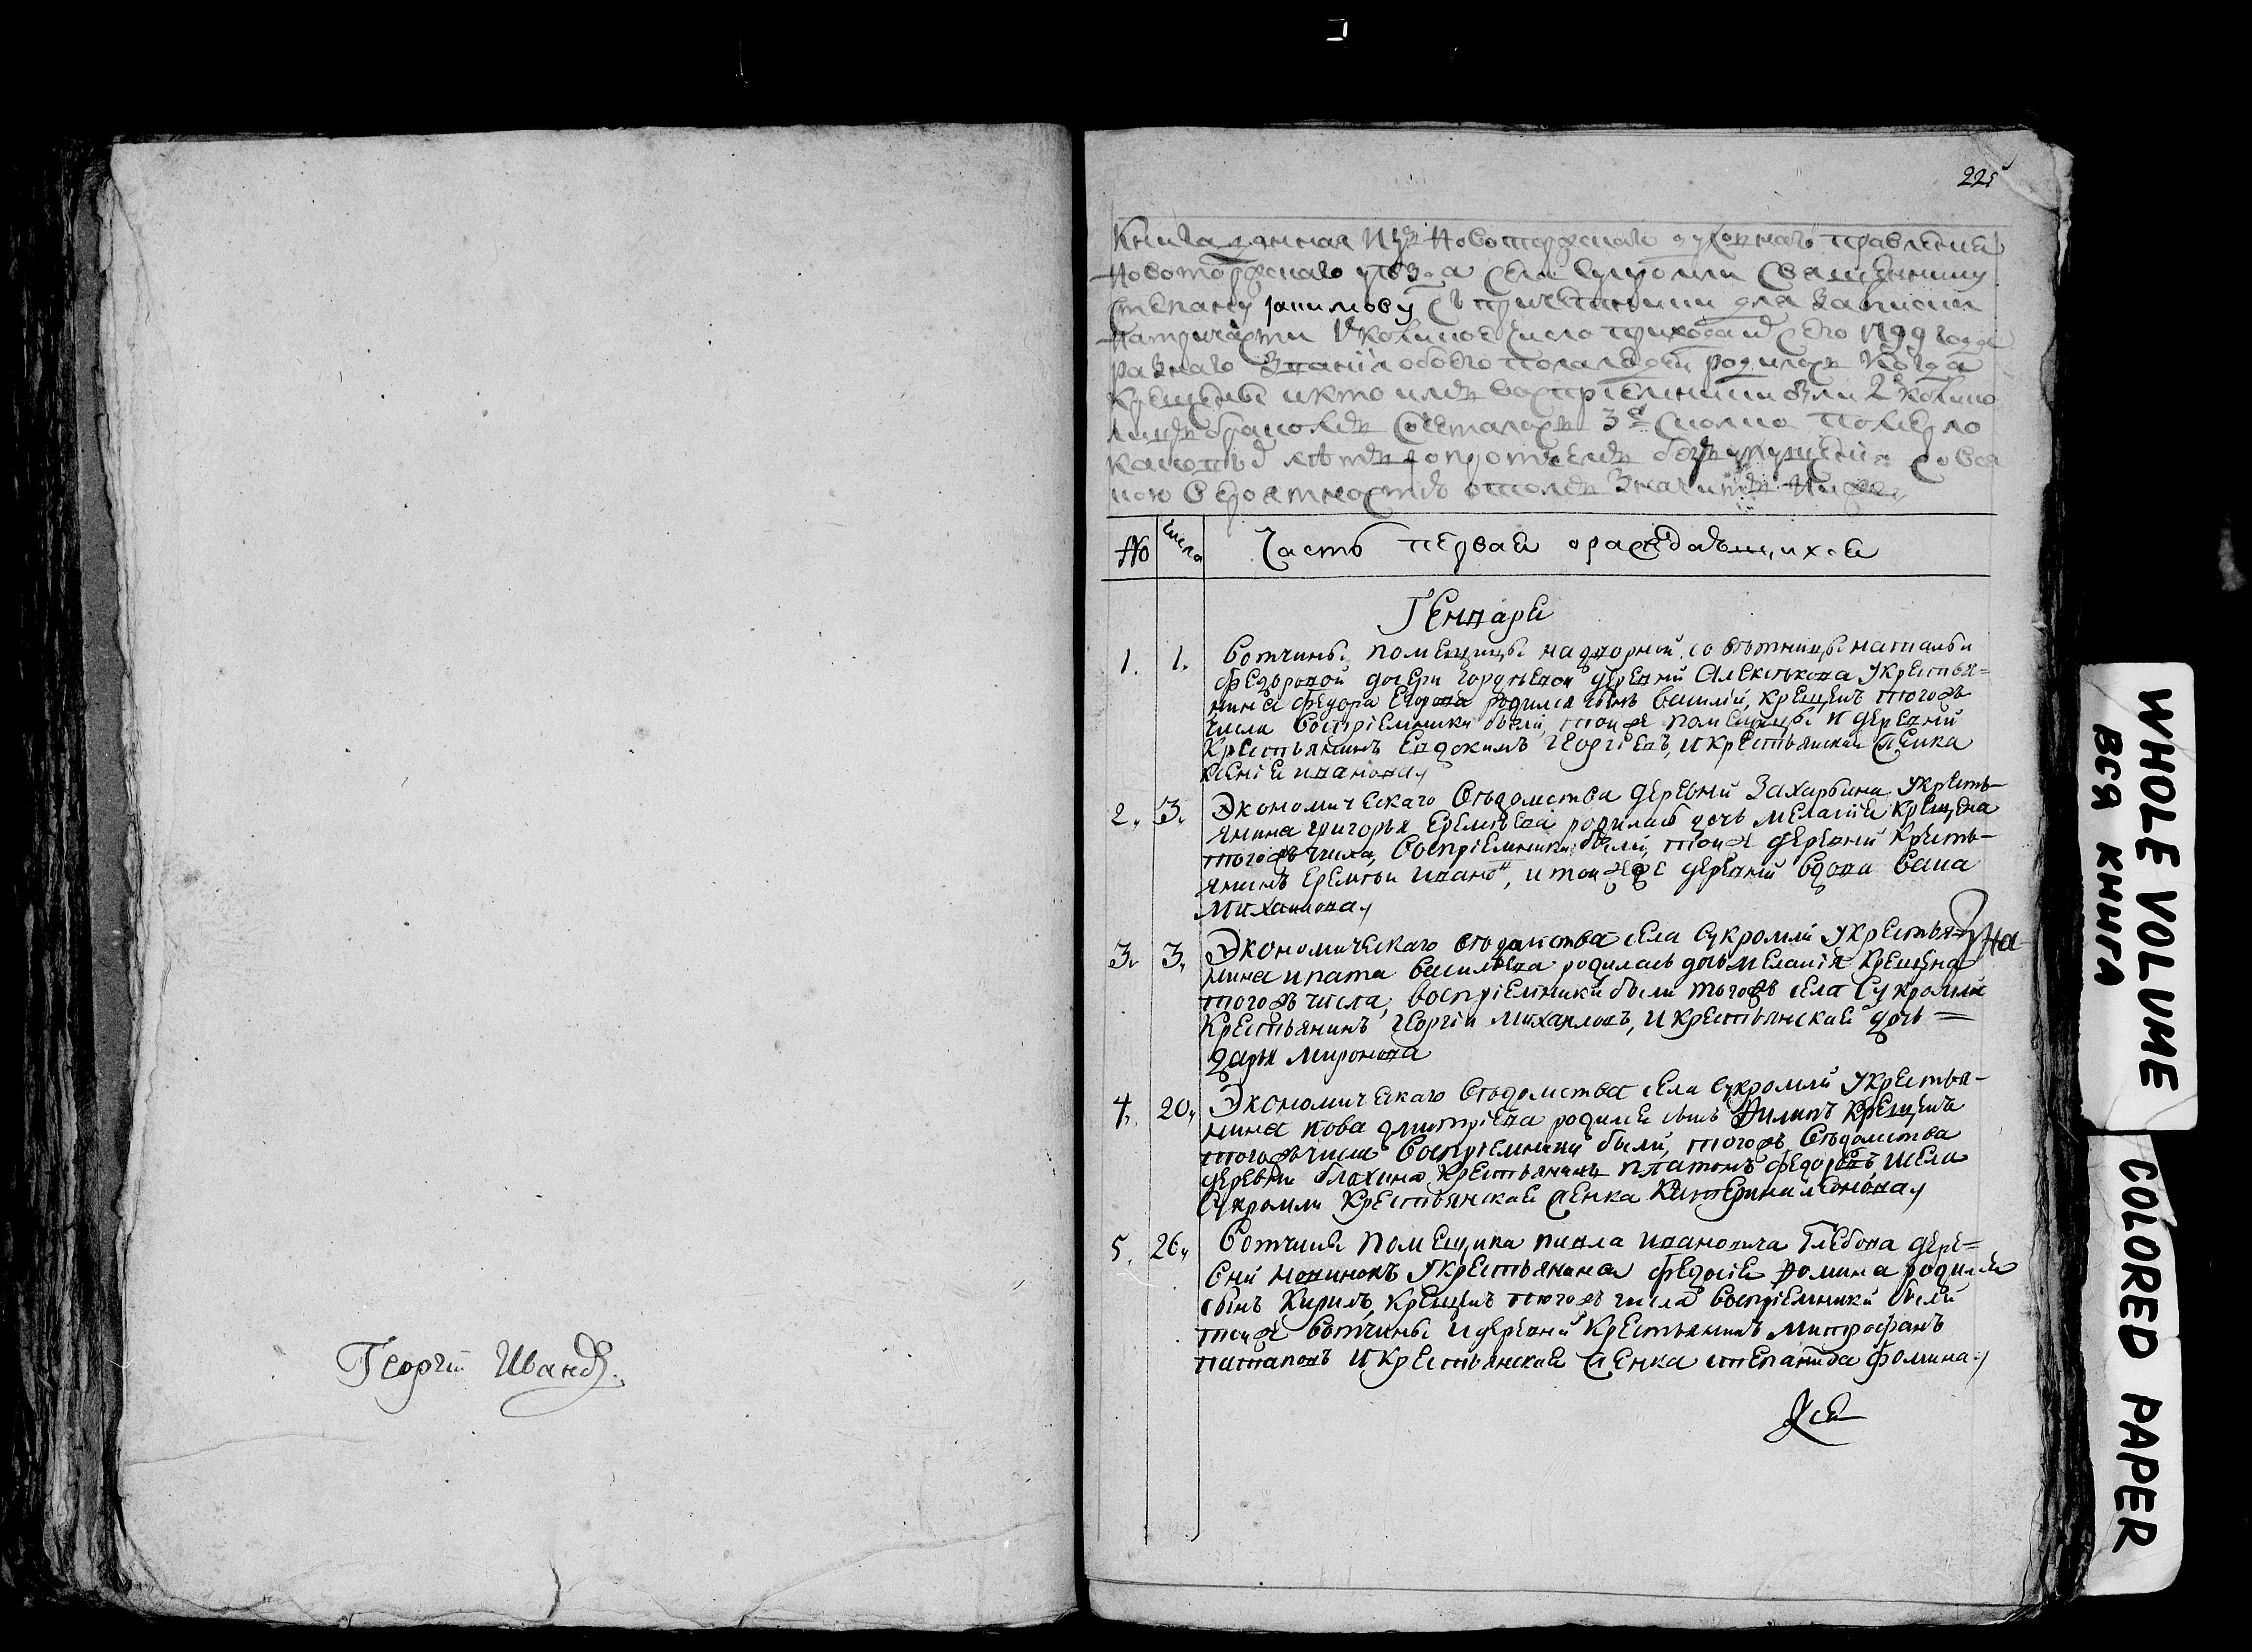 225
Книга данная изъ Новоторжскаго духовнаго правления
Новоторжскаго уѣзда села Сукромли Священнику
Степану Іакимову съ причетники для записки
на три части 1е колико число прихода сего 1799 года
разнаго званія обоего пола людей родилось когда
крещены и кто имъ восприемники были 2е колико
лицъ бракомъ сочеталось 3е сколко померло
со вся
кою вероятностью о томъ значитъ ниже
No числа Часть первая о раждающихся
Генваря
1. 1. Вотчины помещицы надворной совѣтницы Натальи
Федоровой дочери деревни Алексѣкова у крестья=
нина Федора Егорова родился сынъ Василий, крещенъ тогожъ
числа Восприемники были, тоиже помещицы и деревни
Крестьянинъ Евдокимъ Георгіевъ, и крестьянская девка
Ксения Иванова
2. 3. Экономическаго вѣдомства деревни Захарьина у кресть-
янина Григорья Еремѣева родилась дочь Меланія крещена
тогожъ числа, восприемники были, тоиже деревни кресть-
янинъ Еремѣи Иванов, и тоиже деревни вдова Васа
Михаилова
3. 3. Экономическаго вѣдомства села Сукромли у крестья-
нина Ипата Василѣева родилась дочь Меланія крещена
тогожъ числа, восприемники были тогожъ села Сукромли
Крестьянинъ Георгіи Михаиловъ, и крестьянская дочь =
Дарья Миронова
4. 20. Экономическаго вѣдомства села Сукромли у крестья-
нина Иова Дмитріева родился сынъ Филипъ крещенъ
тогожъ числа Восприемники были, тогожъ вѣдомства
деревни Блохина крестьянинъ Платонъ Федоровъ, и села
Сукромли крестьянская девка Катерина Леонова
5. 26. Вотчины помещика Павла Ивановича Глебова дере=
вни у крестьянина Федосея Фомина родился
сынъ Кирилъ, крещенъ тогожъ числа восприемники были
тоиже вотчины и деревни крестьянинъ Митрофанъ
Патаповъ и крестьянская девка Степанида Фомина
Георгій Иванов.
WHOLE VOLUME
ВСЯ КНИГА
COLORED PAPER